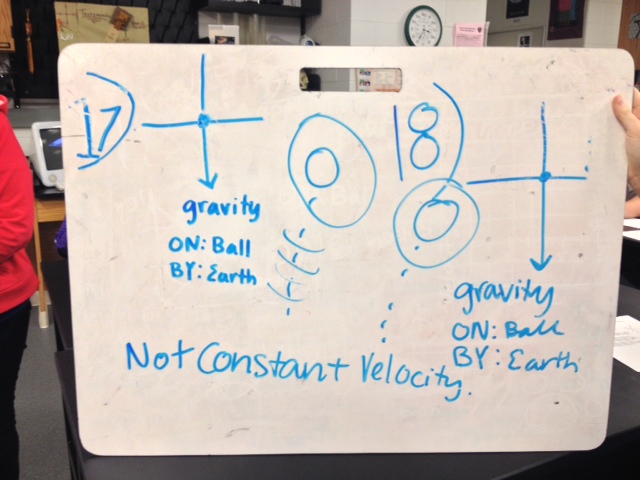 17)
gravity
ON: Ball
BY: Earth
18)
gravity
ON: Ball
BY: Earth
Not Constant Velocity.